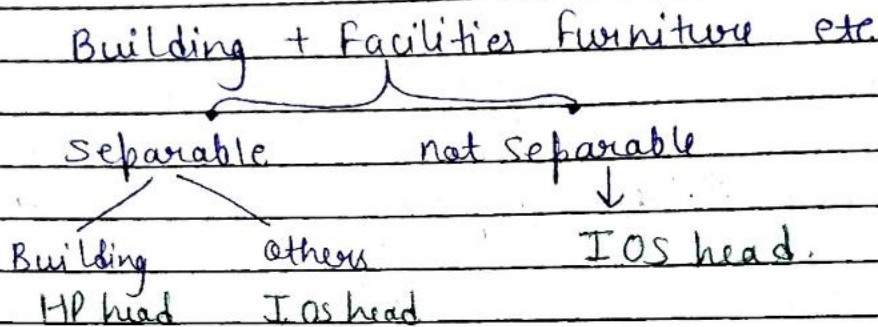 Building + Facilities Furniture etc
Separable not Separable
Building Others IOS head.
HP head I.OS head